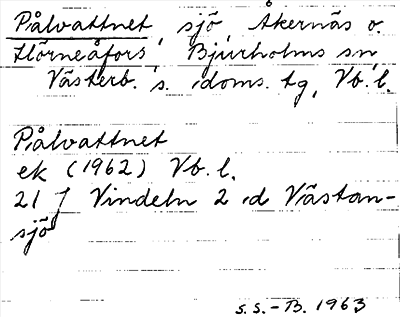 Pålvattnet, sjö, Åkernäs o.
Hörneåfors, Bjurholms sn
Västerb. s. doms. tg, Vb. l.
Pålvattnet
ek (1962) Vb. l.
21 J Vindeln 2 d Västan-
sjö
S.S.-B. 1963